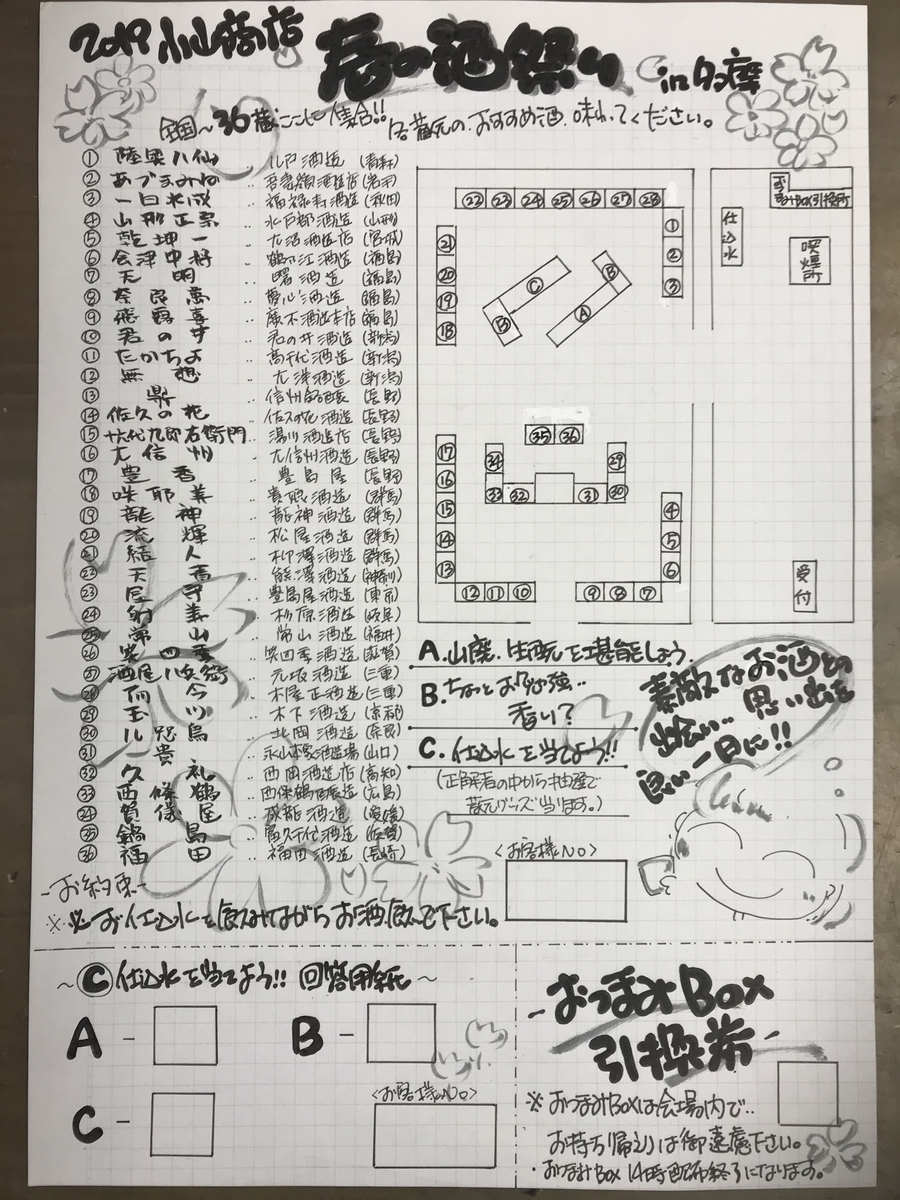 2019 小山商店 春の酒祭り in 多摩
全国〜36蔵ここに集合!! 各蔵元のおすすめ酒、味わってください。
① 陸奥八仙 ‥ 八戸酒造 (青森)
② あづまみね ‥ 吾妻嶺酒造店 (岩手)
③ 一白水成 ‥ 福禄寿酒造 (秋田)
④ 山形正宗 ‥ 水戸部酒造 (山形)
⑤ 乾坤一 ‥ 大沼酒造店 (宮城)
⑥ 会津中将 ‥ 鶴乃江酒造 (福島)
⑦ 天明 ‥ 曙酒造 (福島)
⑧ 奈良萬 ‥ 夢心酒造 (福島)
⑨ 飛露喜 ‥ 廣木酒造本店 (福島)
⑩ 君の井 ‥ 君の井酒造 (新潟)
⑪ たかちよ ‥ 高千代酒造 (新潟)
⑫ 無想 ‥ 大洋酒造 (新潟)
⑬ 鼎 ‥ 信州銘醸 (長野)
⑭ 佐久の花 ‥ 佐久の花酒造 (長野)
⑮ 十六代九郎右衛門 ‥ 湯川酒造店 (長野)
⑯ 大信州 ‥ 大信州酒造 (長野)
⑰ 豊香 ‥ 豊島屋 (長野)
⑱ 咲耶美 ‥ 貴娘酒造 (群馬)
⑲ 龍神 ‥ 龍神酒造 (群馬)
⑳ 流輝 ‥ 松屋酒造 (群馬)
㉑ 結人 ‥ 柳澤酒造 (群馬)
㉒ 天青 ‥ 熊澤酒造 (神奈川)
㉓ 屋守 ‥ 豊島屋酒造 (東京)
㉔ 射美 ‥ 杉原酒造 (岐阜)
㉕ 常山 ‥ 常山酒造 (福井)
㉖ 笑四季 ‥ 笑四季酒造 (滋賀)
㉗ 酒屋八兵衛 ‥ 元坂酒造 (三重)
㉘ 而今 ‥ 木屋正酒造 (三重)
㉙ 玉川 ‥ 木下酒造 (京都)
㉚ 八咫烏 ‥ 北岡酒造 (奈良)
㉛ 貴 ‥ 永山本家酒造場 (山口)
㉜ 久礼 ‥ 西岡酒造店 (高知)
㉝ 西條鶴 ‥ 西條鶴醸造 (広島)
㉞ 賀儀屋 ‥ 成龍酒造 (愛媛)
㉟ 鍋島 ‥ 富久千代酒造 (佐賀)
㊱ 福田 ‥ 福田酒造 (長崎)
㉒ ㉓ ㉔ ㉕ ㉖ ㉗ ㉘
㉑ ⑳ ⑲ ⑱
① ② ③
B C
A B
㉟ ㊱
㉞ ㉝ ㉜ ㉛ ㉚ ㉙
⑰ ⑯ ⑮ ⑭ ⑬
⑫ ⑪ ⑩
⑨ ⑧ ⑦
④ ⑤ ⑥
仕込水
おつまみBOX引換所
喫煙所
受付
A.山廃、生酛を堪能しよう
B.ちょっとお勉強‥
香り?
C.仕込水を当てよう!!
(正解者の中から抽選で
蔵元グッズ当ります。)
素敵なお酒との
出会い‥思い出を
良い一日に!!
<お客様NO>
-お約束-
※必ず仕込水を飲みながらお酒飲んで下さい。
〜Ⓒ仕込水を当てよう!! 回答用紙〜
A -
B -
C -
<お客様NO>
-おつまみBox
引換券-
※おつまみBoxは会場内で‥
お持ち帰りは御遠慮下さい。
・おつまみBox 14時配布終了になります。